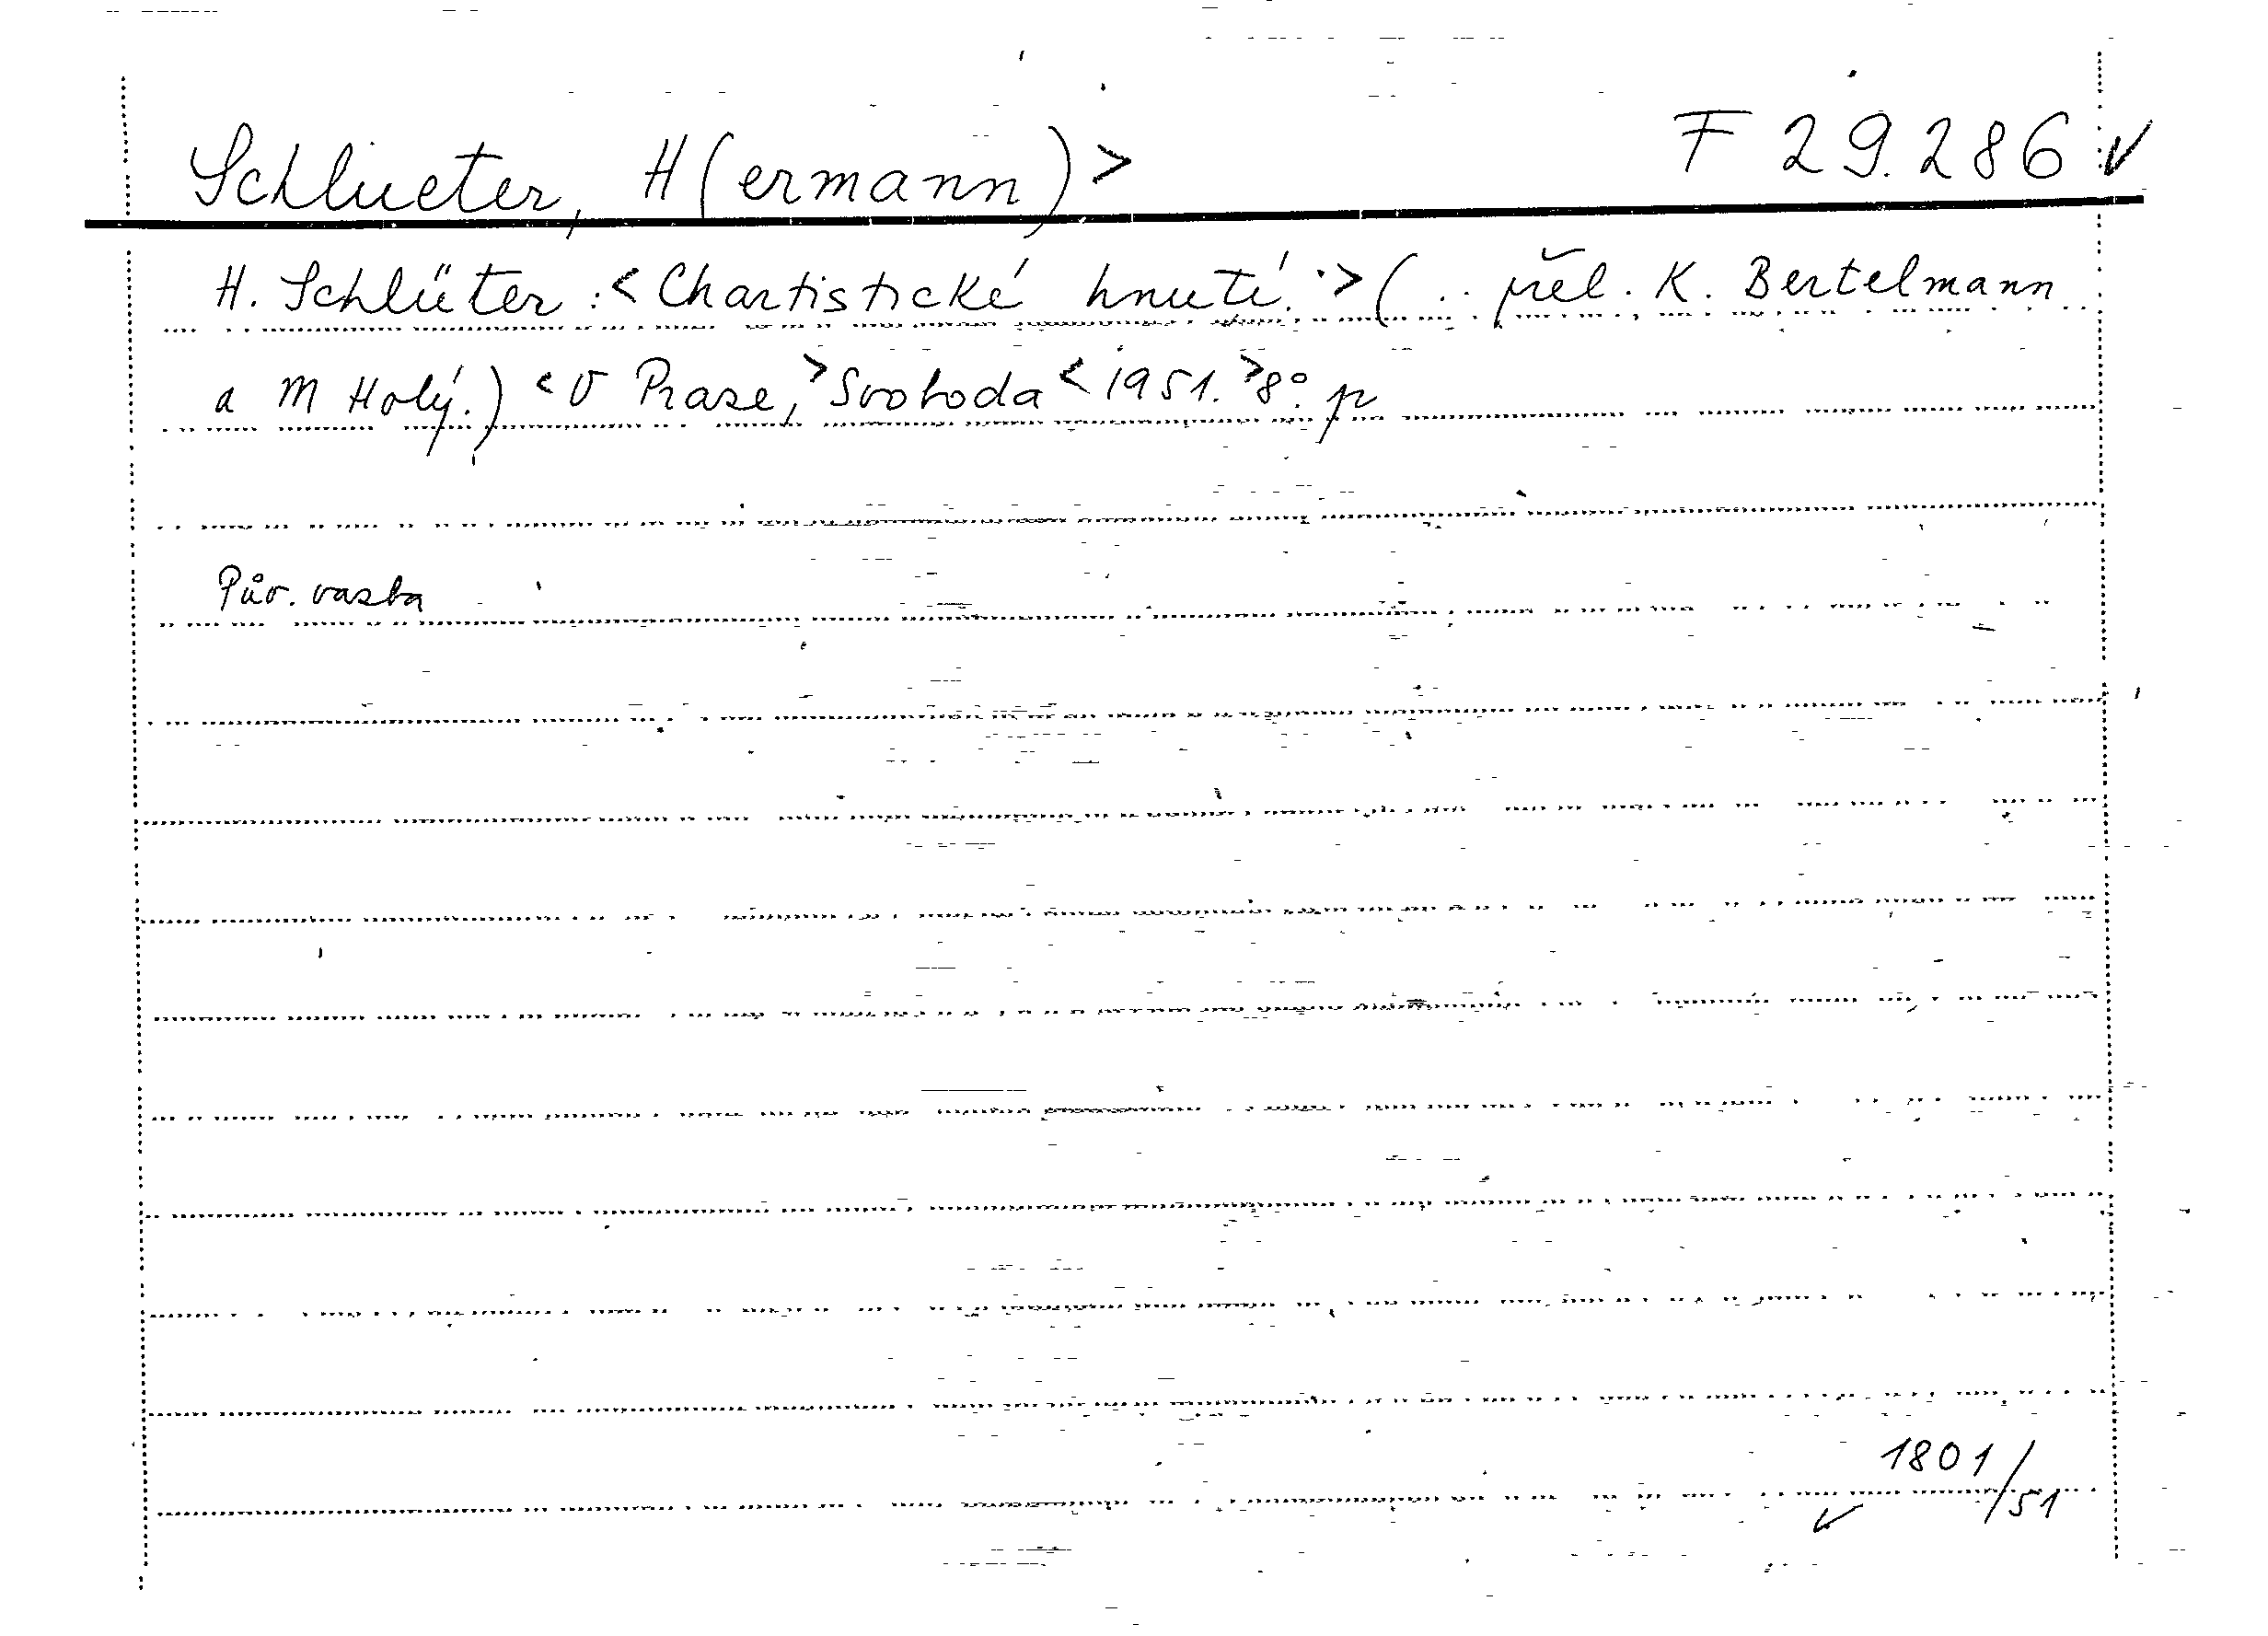 Schlueter, H(ermann)> F 29.286 ✓
H. Schlüter: <Chartistické hnutí.> (.. přel. K. Bertelmann
a M Holý.) <V Praze,> Svoboda <1951.> 8°. p
Pův. vazba
1801/51
✓